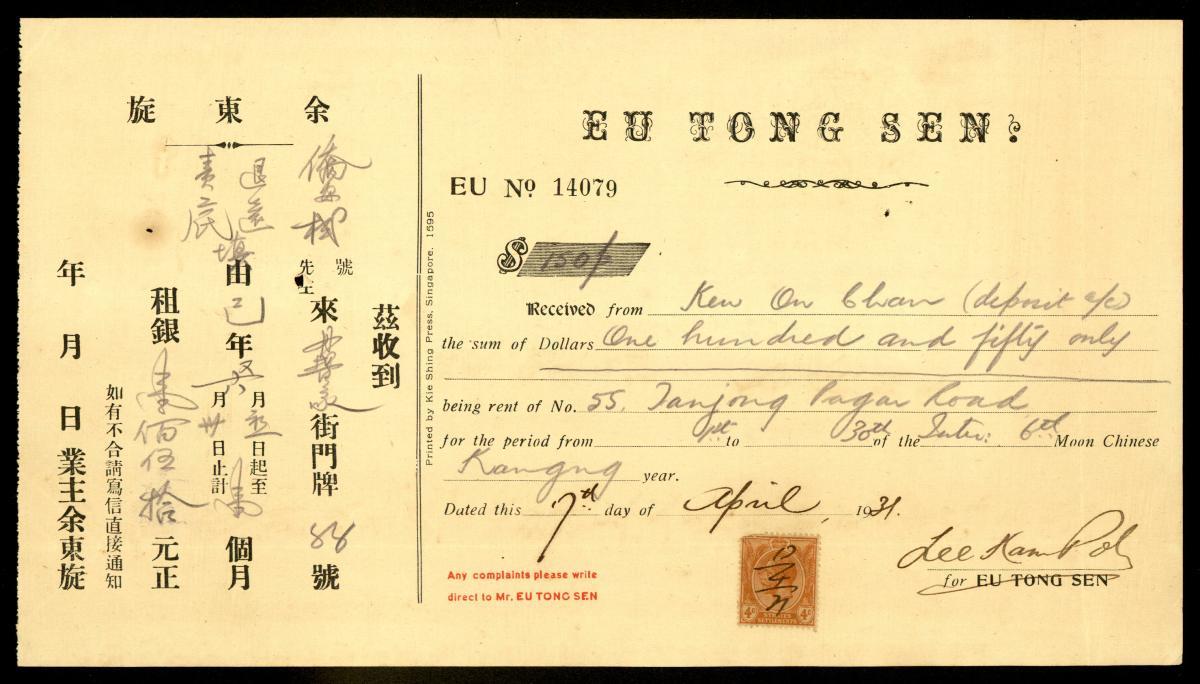 EU TONG SEN.
EU No 14079
$ 150/-
Received from Kew On Chan (deposit a/c)
the sum of Dollars One hundred and fifty only
being rent of No. 55, Tanjong Pagar Road
for the period from 1st to 30th of the Inter: 6th Moon Chinese
year.
Dated this 17th day of April, 1931.
Lee Kam Poh
for EU TONG SEN
Any complaints please write
direct to Mr. EU TONG SEN
4c STRAITS SETTLEMENTS 4c
Printed by Kie Shing Press, Singapore. 1595
余東旋
茲收到
僑安棧 號 先生 來 街門牌 號
退還
由 己 年 月 日起至
月 卅 日止計 個月
租銀 壹佰伍拾 元正
如有不合請寫信直接通知
年月日業主余東旋